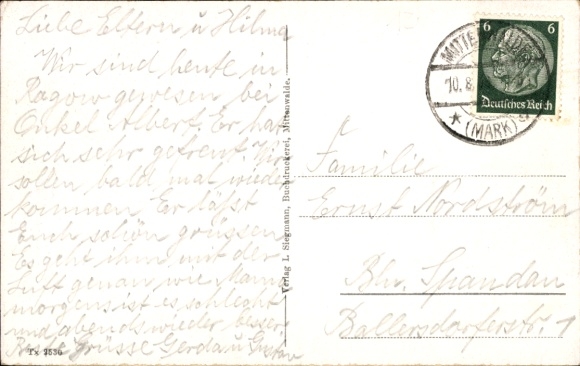 Liebe Eltern u Hilma
Wir sind heute in
Ragow gewesen bei
Onkel Albert. Er hat
sich sehr gefreut. Wir
sollen bald mal wieder
kommen Er läßt
Euch schön grüssen
Es geht ihm mit der
Luft genau wie Mama
morgens ist es schlecht
und abends wieder besser
Beste Grüsse Gerda u Gustav
Tx 2530
Verlag L. Siegmann, Buchdruckerei, Mittenwalde.
6 6
Deutsches Reich
MITTENWALDE
10.8.
★ (MARK)
Familie
Ernst Nordström
Bln. Spandau
Ballersdorferstr. 1